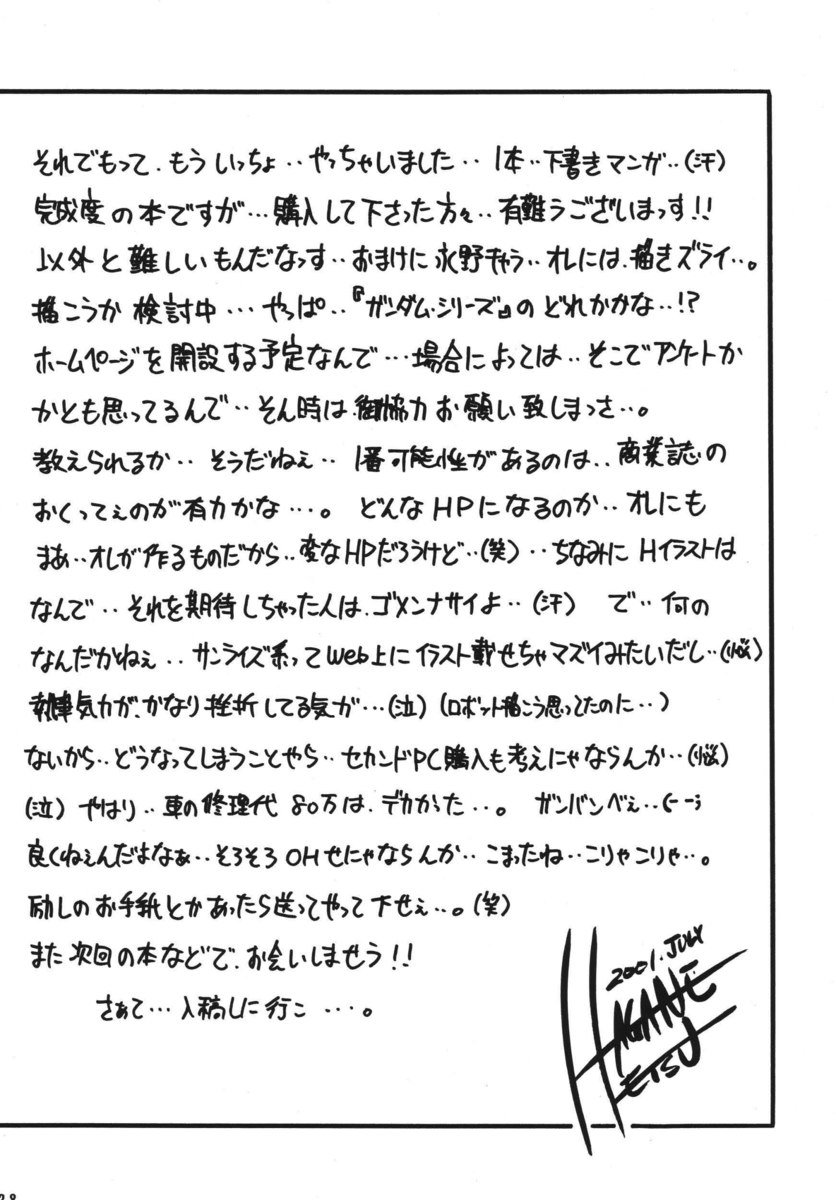 それでもって、もういっちょ‥やっちゃいました‥1本‥下書きマンガ‥(汗)
完成度の本ですが…購入して下さった方々‥有難うございまっす!!
以外と難しいもんだなっす‥おまけに永野キャラ‥オレには、描きズライ‥。
描こうか検討中…やっぱ‥『ガンダム・シリーズ』のどれかかな‥!?
ホームページを開設する予定なんで…場合によっては‥そこでアンケートか
かとも思ってるんで‥そん時は御協力お願い致しまっさ‥。
教えられるか‥そうだねぇ‥1番可能性があるのは‥商業誌の
おくってぇのが有力かな…。どんなHPになるのか‥オレにも
まあ‥オレが作るものだから‥変なHPだろうけど‥(笑)‥ちなみにHイラストは
なんで‥それを期待しちゃった人は、ゴメンナサイよ‥(汗) で‥何の
なんだかねぇ‥サンライズ系ってWeb上にイラスト載せちゃマズイみたいだし‥(悩)
気力が、かなり挫折してる気が…(泣)(ロボット描こう思ってたのに‥)
ないから‥どうなってしまうことやら‥セカンドPC購入も考えにゃならんか‥(悩)
(泣)やはり‥車の修理代80万は、デカかった‥。ガンバンべぇ‥
良くねぇんだよなぁ‥そろそろOHせにゃならんか‥こまったね‥こりゃこりゃ‥。
励しのお手紙とかあったら送ってやって下せぇ‥。(笑)
また次回の本などで、お会いしませう!!
さぁて…入稿しに行こ…。
2001.JULY
HAGANE
ETSU
28